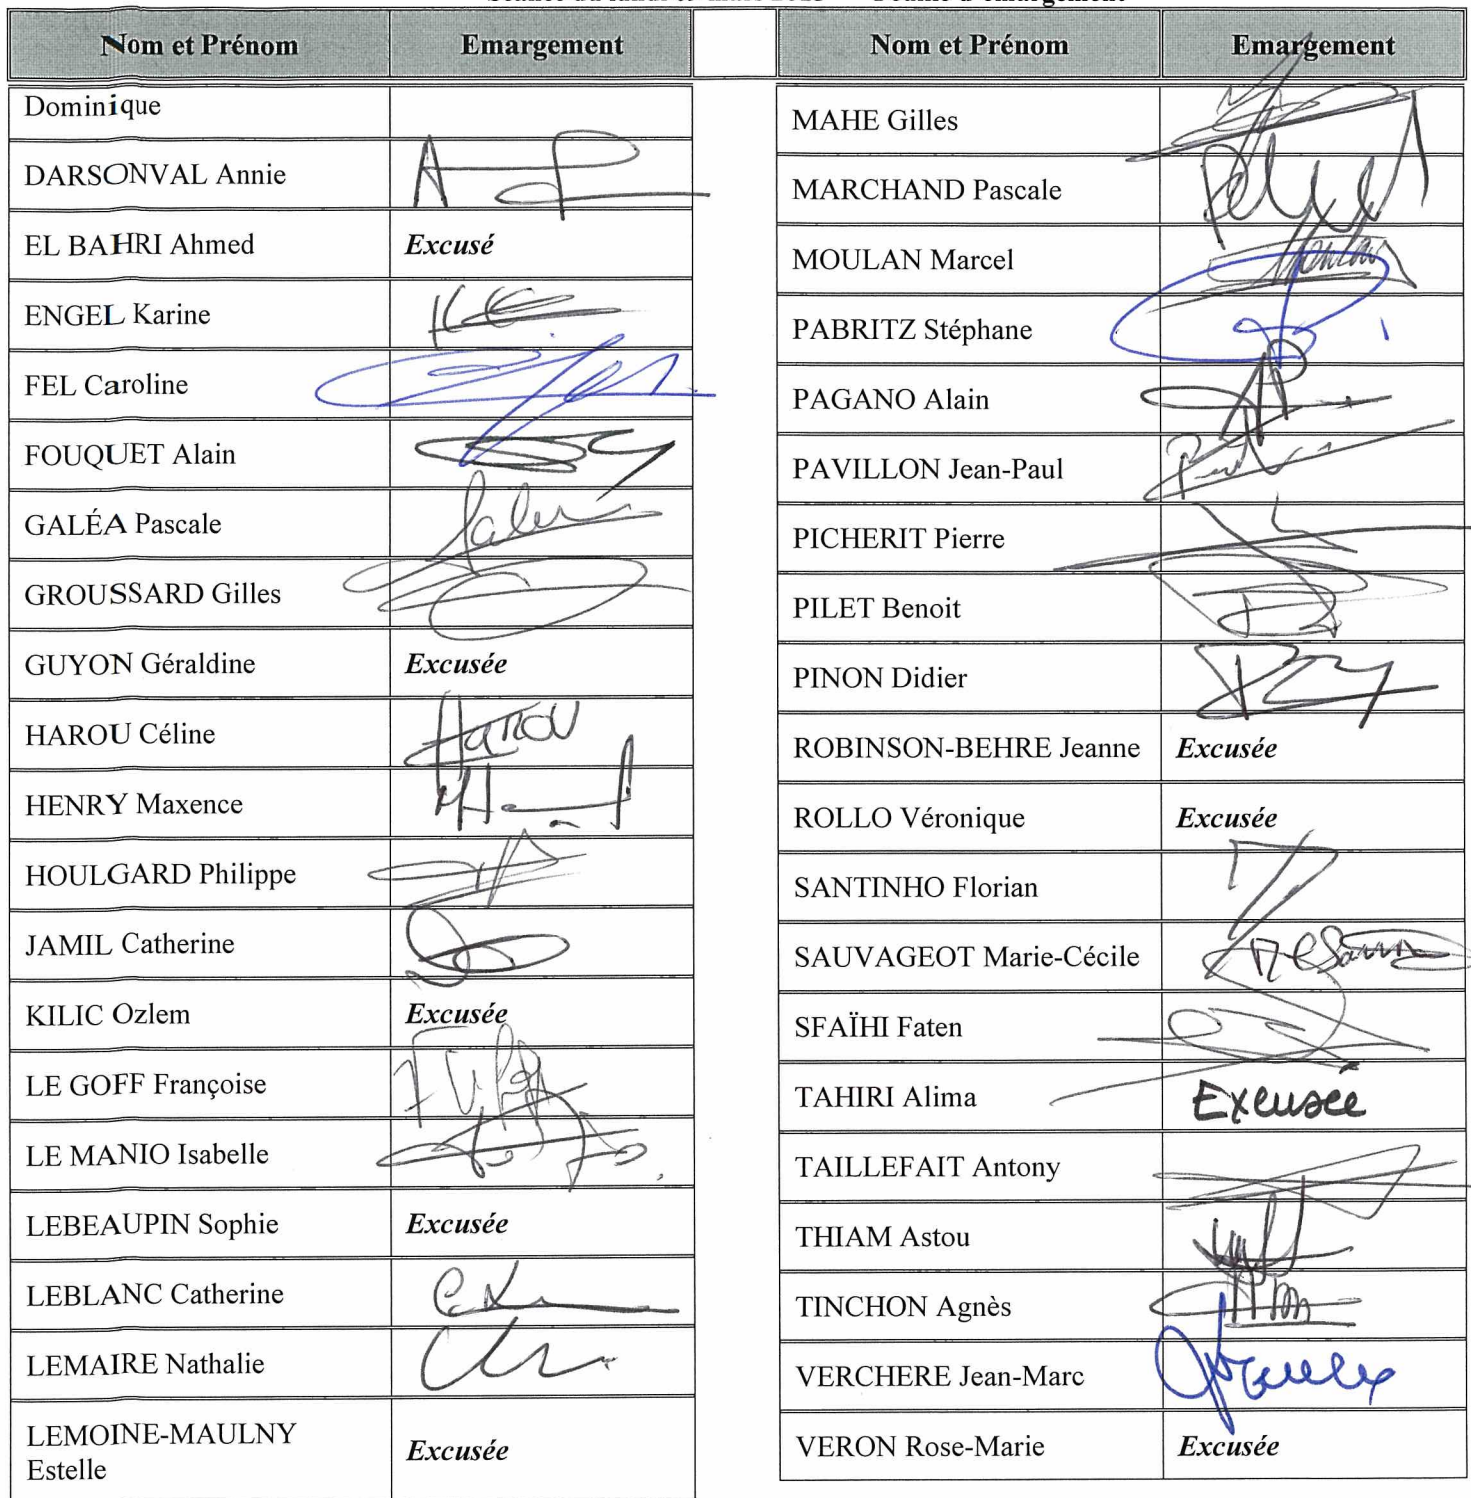 Nom et Prénom Emargement
Dominique
DARSONVAL Annie
EL BAHRI Ahmed Excusé
ENGEL Karine
FEL Caroline
FOUQUET Alain
GALÉA Pascale
GROUSSARD Gilles
GUYON Géraldine Excusée
HAROU Céline Harou
HENRY Maxence
HOULGARD Philippe
JAMIL Catherine
KILIC Ozlem Excusée
LE GOFF Françoise
LE MANIO Isabelle
LEBEAUPIN Sophie Excusée
LEBLANC Catherine
LEMAIRE Nathalie
LEMOINE-MAULNY
Estelle Excusée
Nom et Prénom Emargement
MAHE Gilles
MARCHAND Pascale
MOULAN Marcel
PABRITZ Stéphane
PAGANO Alain
PAVILLON Jean-Paul
PICHERIT Pierre
PILET Benoit
PINON Didier
ROBINSON-BEHRE Jeanne Excusée
ROLLO Véronique Excusée
SANTINHO Florian
SAUVAGEOT Marie-Cécile
SFAÏHI Faten
TAHIRI Alima Excusée
TAILLEFAIT Antony
THIAM Astou
TINCHON Agnès
VERCHERE Jean-Marc
VERON Rose-Marie Excusée